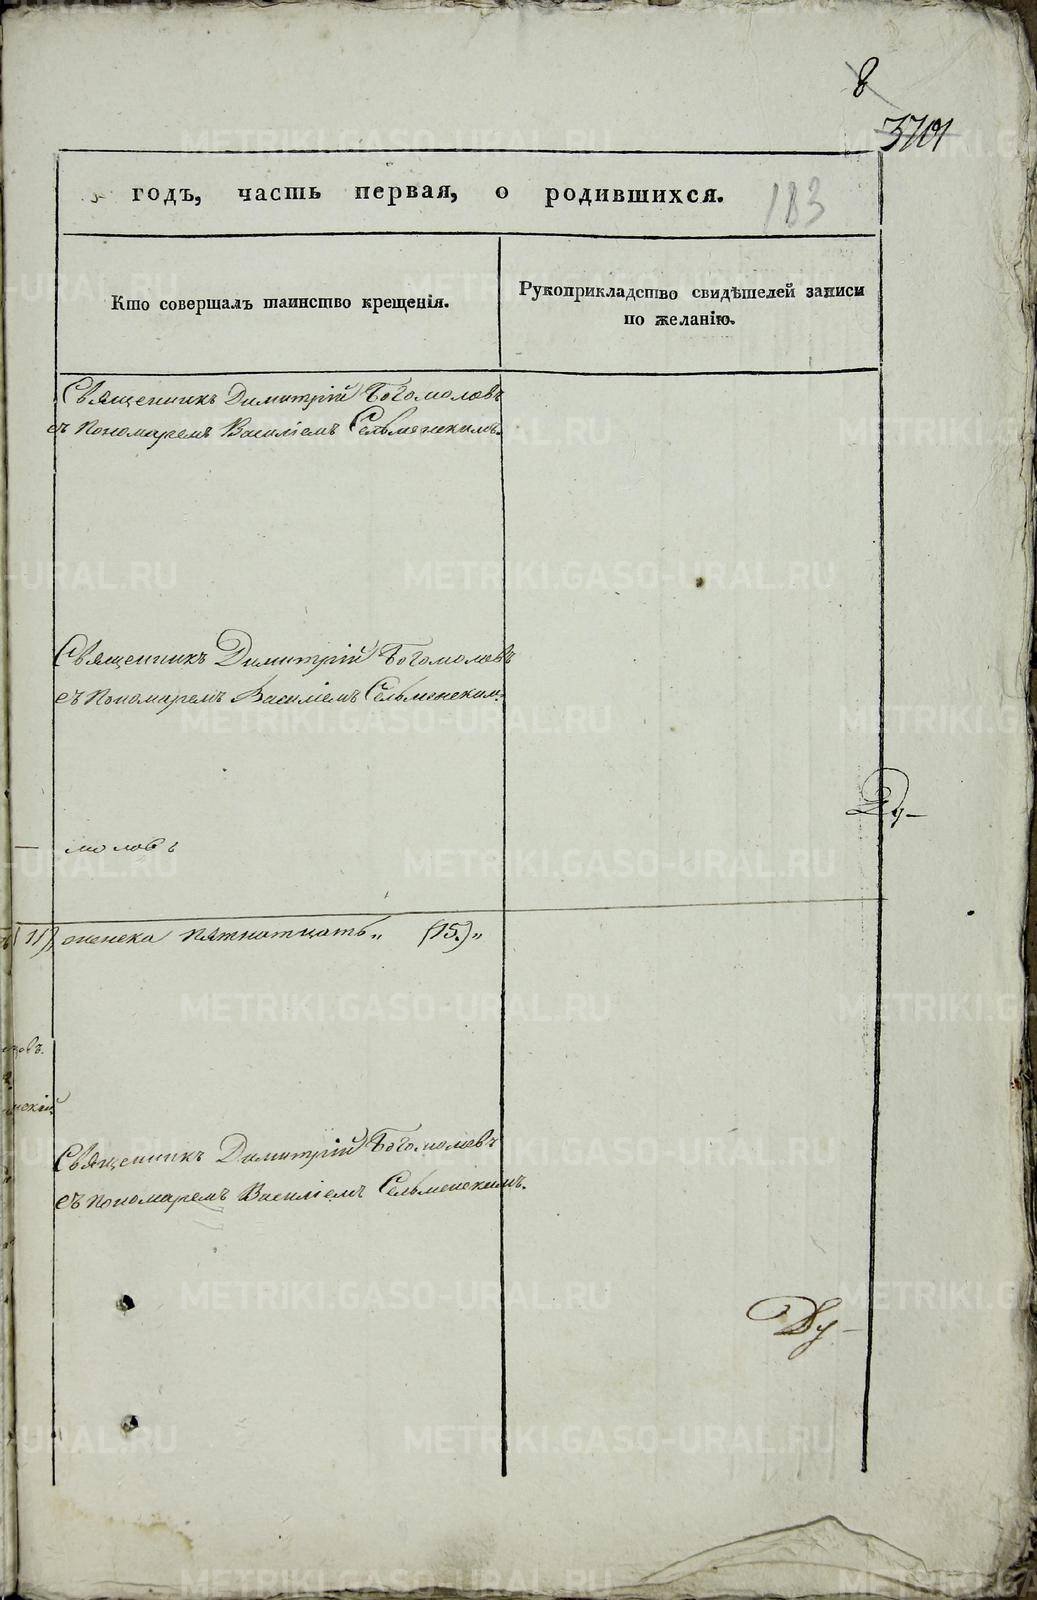 8
годъ, часть первая, о родившихся. 183
Кто совершалъ таинство крещенія.
Рукоприкладство свидѣтелей записи
по желанію.
Священникъ Димитрій Богомоловъ
съ Пономаремъ Василіемъ Сельменскимъ.
Священникъ Димитрій Богомоловъ
съ Пономаремъ Василіемъ Сельменским.
Ду-
— моловъ
(11) женска пятнотцать „ (15.) „
Священникъ Димитрій Богомоловъ
съ Пономаремъ Василіемъ Сельменскимъ.
Ду-
METRIKI.GASO-URAL.RU